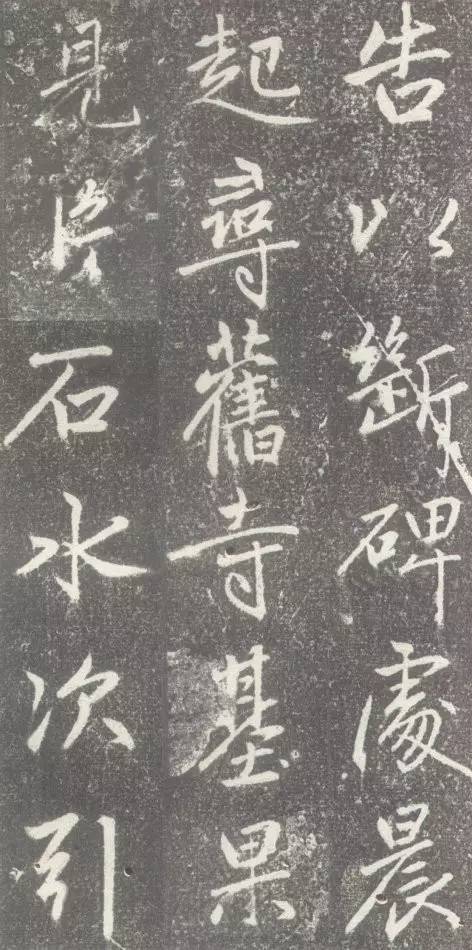 告以斷碑處晨
起尋舊寺基果
見片石水次引